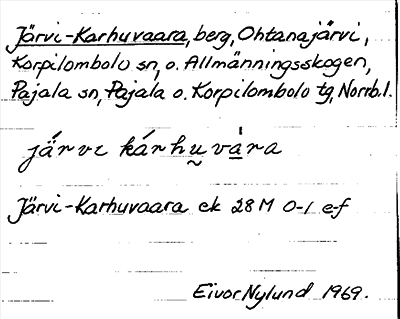 Järvi-Karhuvaara, berg, Ohtanajärvi,
Korpilombolo sn, o. Allmänningsskogen,
Pajala sn, Pajala o. Korpilombolo tg, Norrb. l.
jä́rvɩ kárhṵvá̱ra
Järvi-Karhuvaara ek 28M 0-1 e-f
Eivor Nylund 1969.